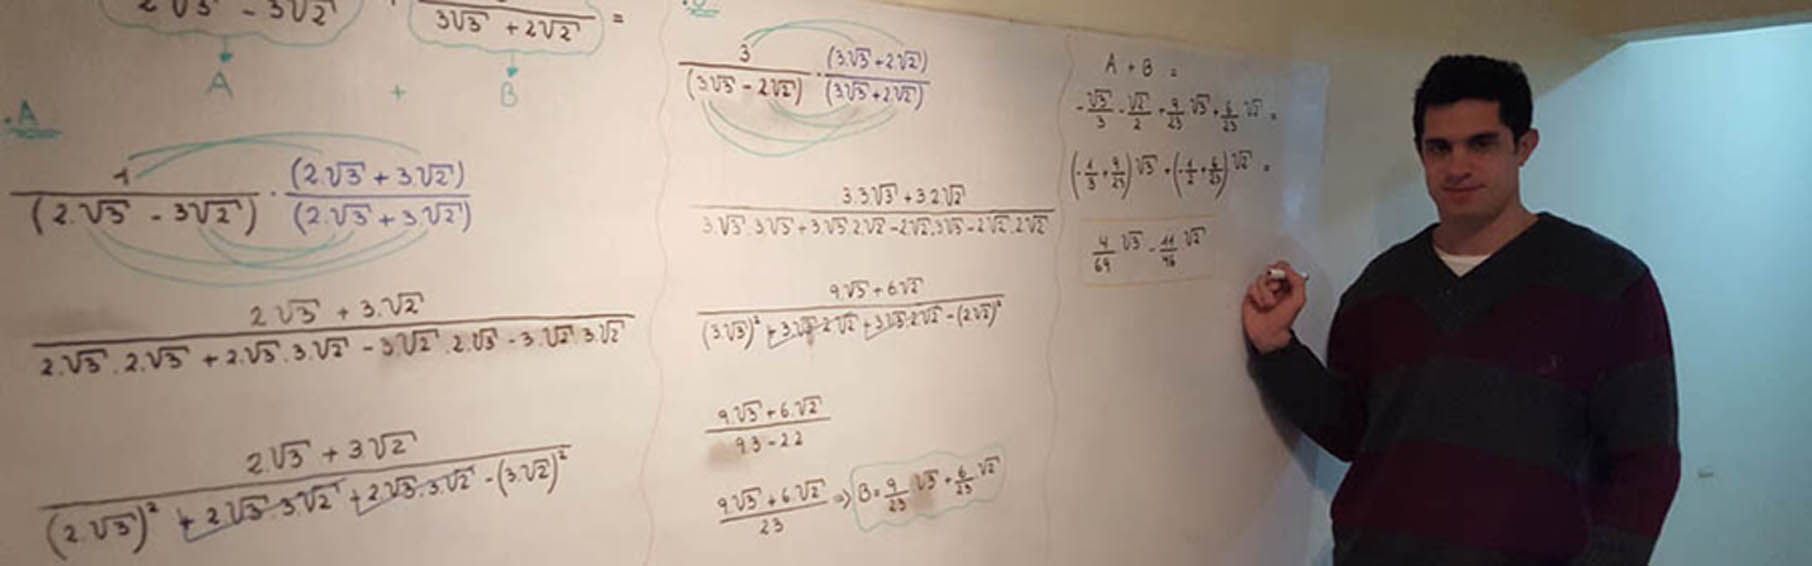 2√3 - 3√2
3√3 + 2√2 =
A + B
.A
1/(2.√3 - 3√2) . (2.√3 + 3.√2)/(2.√3 + 3.√2)
2√3 + 3.√2
2.√3.2.√3 + 2.√3.3.√2 - 3.√2.2.√3 - 3.√2.3.√2
2.√3 + 3√2
(2.√3)² + 2√3.3√2 + 2√3.3√2 - (3.√2)²
3/(3√3 - 2√2) . (3.√3 + 2√2)/(3√3 + 2√2)
3.3.√3 + 3.2√2
3.√3.3√3 + 3.√3.2.√2 - 2√2.3√3 - 2√2.2√2
9.√3 + 6√2
(3.√3)² + 3.√3.2√2 + 3√3.2√2 - (2√2)²
9.√3 + 6.√2
9.3 - 2.2
9√3 + 6√2 / 23 => B = 9/23 √3 + 6/23 √2
A + B =
- √3/3 - √2/2 + 9/23 √3 + 6/23 √2 =
(-1/3 + 9/23) √3 + (-1/2 + 6/23) √2 =
4/69 √3 - 11/46 √2